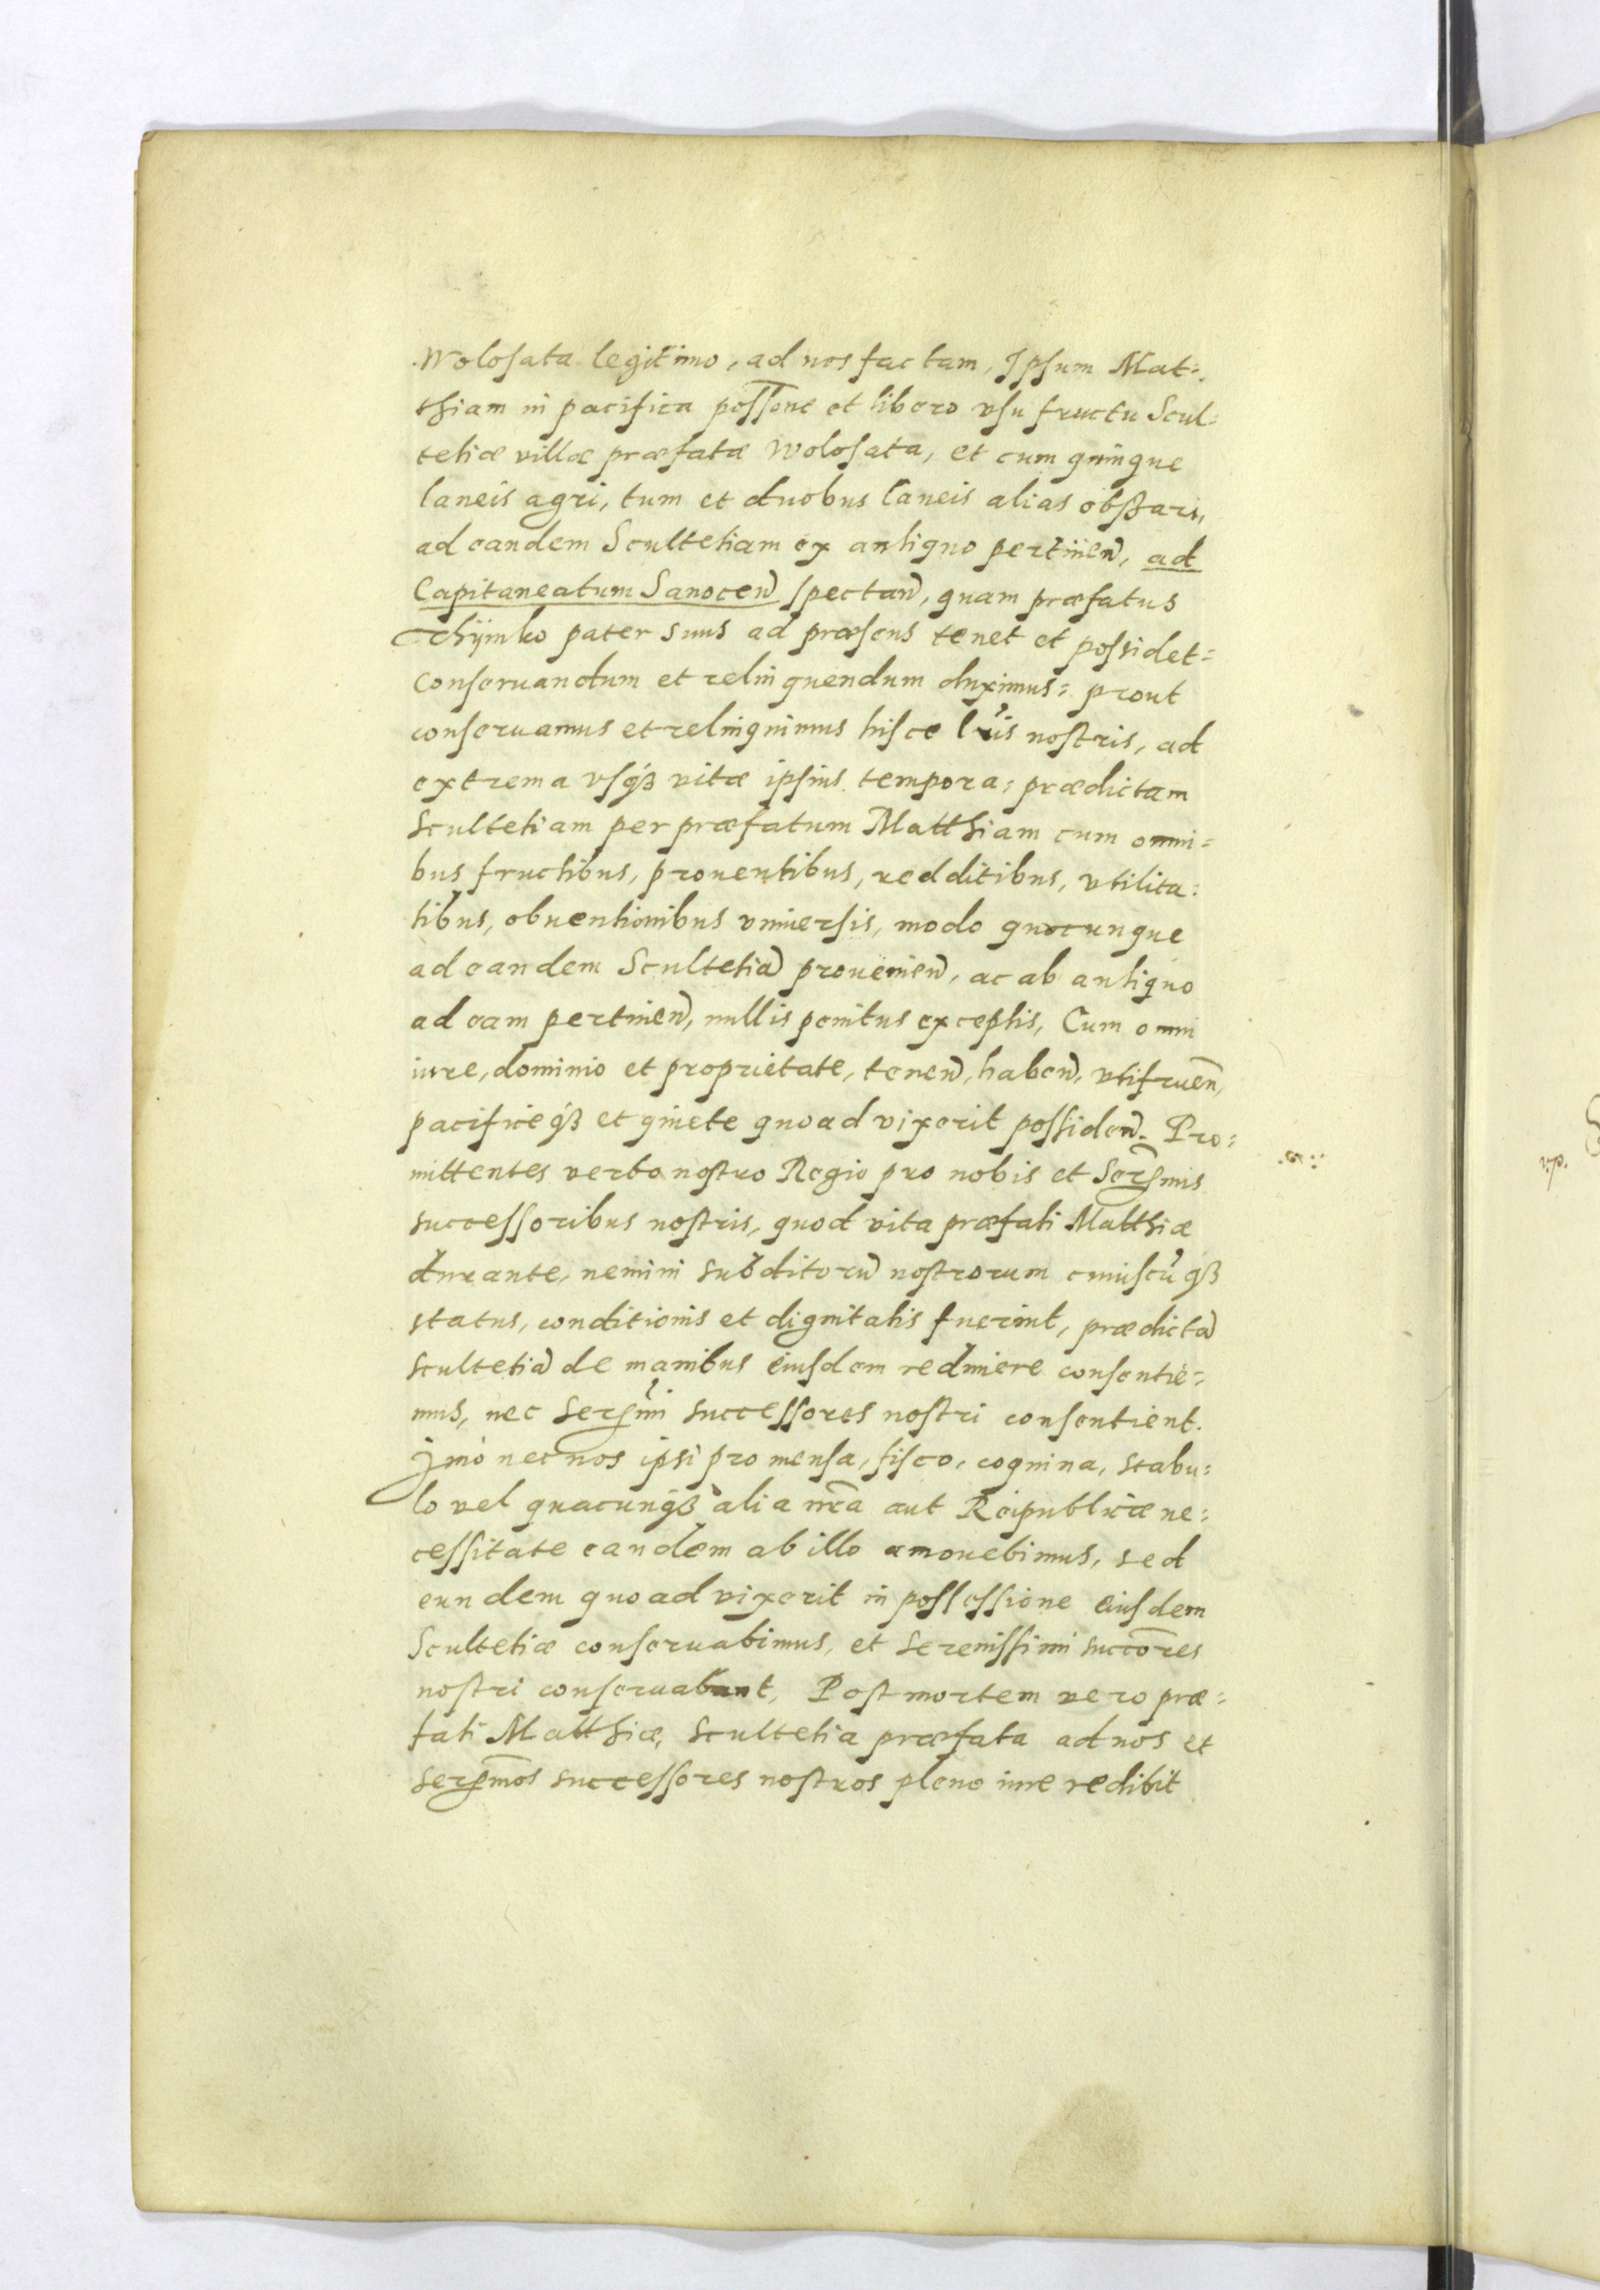 Wolosata legitimo, ad nos factam, Ipsum Mat=
thiam in pacifica possone et libero vsufructu Scul=
tetiæ villæ præfatæ Wolosata, et cum quinque
laneis agri, tum et duobus laneis alias obszari,
ad eandem Scultetiam ex antiquo pertinen, ad
Capitaneatum Sanocen spectan, quam præfatus
Chijmko pater suus ad præsens tenet et possidet=
conseruandum et relinquendum duximus: prout
conseruamus et relinquimus hisce lris nostris, ad
extrema vsq3 vitæ ipsius tempora: prædictam
Scultetiam per præfatum Matthiam cum omni=
bus fructibus, prouentibus, redditibus, vtilita=
tibus, obuentionibus vniuersis, modo quocunque
ad eandem Scultetia prouenien, ac ab antiquo
ad eam pertinen, nullis penitus exceptis, Cum omni
iure, dominio et proprietate, tenen, haben, vtifruen,
pacificeq3 et quiete quoad vixerit possiden. Pro=
mittentes verbo nostro Regio pro nobis et Sermis
successoribus nostris, quod vita præfati Matthiæ
durante, nemini subditoru nostrorum cuiuscuq3
status, conditionis et dignitatis fuerint, prædicta
scultetia de manibus eiusdem redimere consentie=
mus, nec sermi successores nostri consentient.
Jmo nec nos ipsi pro mensa, fisco, coquina, stabu=
lo vel quacunq3 alia nra aut Reipublicæ ne=
cessitate eandem ab illo amouebimus, sed
eundem quoad vixerit in possessione eiusdem
Scultetiæ conseruabimus, et serenissimi succores
nostri conseruabunt, Post mortem vero præ=
fati Matthiæ, scultetia præfata ad nos et
sermos successores nostros pleno iure redibit
v.p.